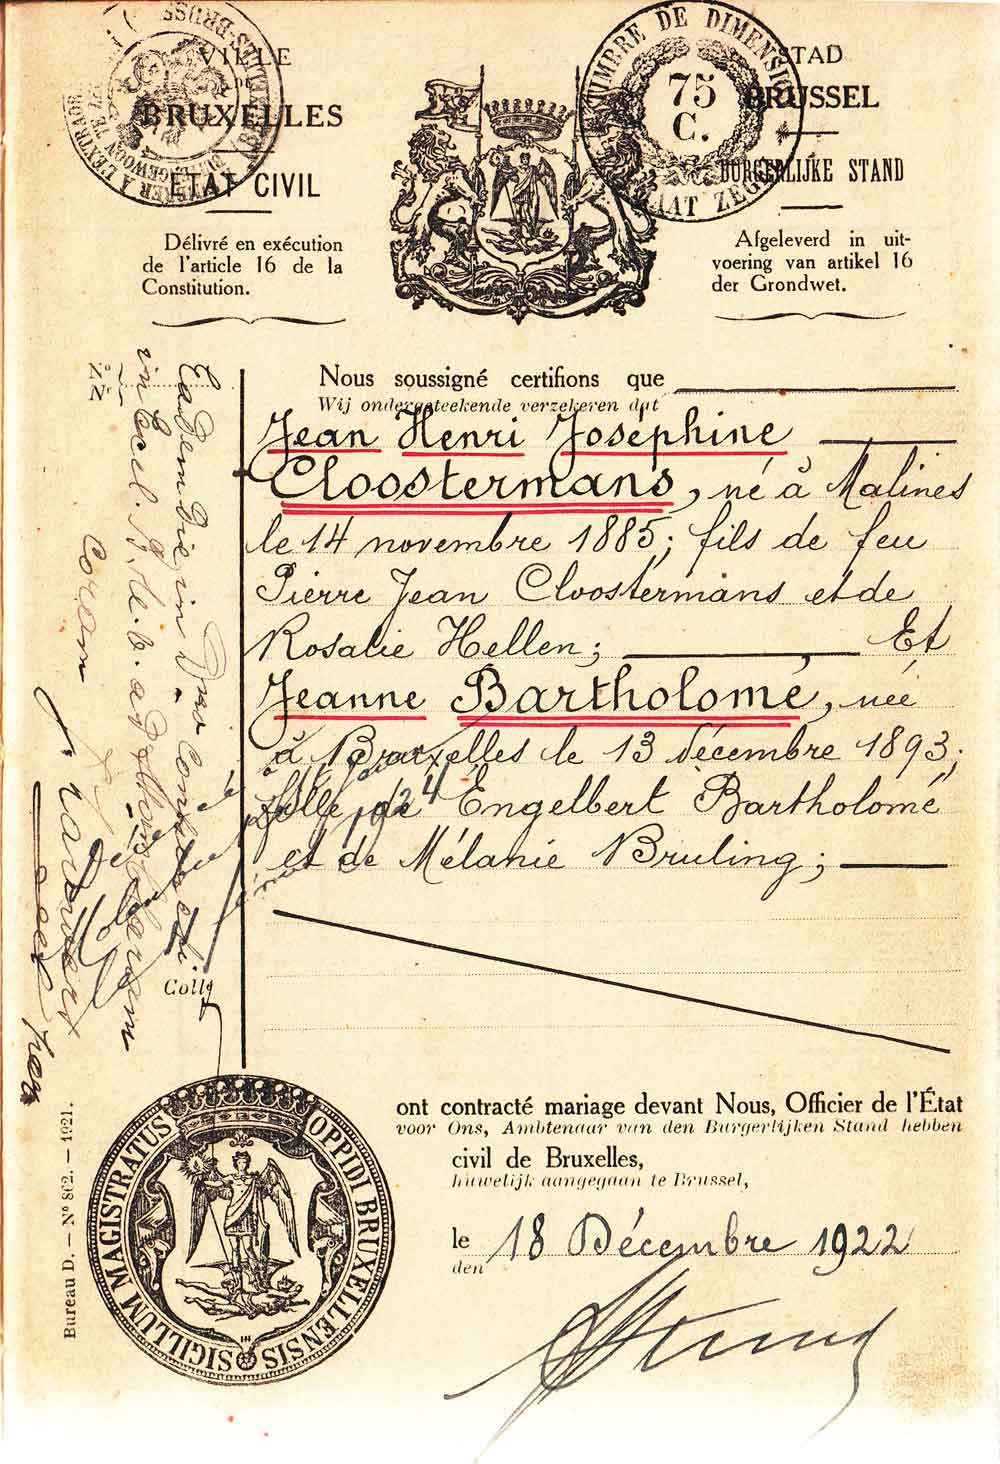 VILLE
DE
BRUXELLES
ÉTAT CIVIL
Délivré en exécution
de l'article 16 de la
Constitution.
TIMBRE DE DIMENSION
75
C.
STAD
BRUSSEL
BURGERLIJKE STAND
Afgeleverd in uit-
voering van artikel 16
der Grondwet.
Nous soussigné certifions que
Wij ondergeteekende verzekeren dat
Jean Henri Joséphine
Cloostermans, né à Malines
le 14 novembre 1885; fils de feu
Pierre Jean Cloostermans et de
Rosalie Hellen; Et
Jeanne Bartholomé, née
à Bruxelles le 13 décembre 1893;
fille de Engelbert Bartholomé
et de Mélanie Bruling;
No
N
Eadem die in
in Eccl.
coram
1924
Coll
ont contracté mariage devant Nous, Officier de l'État
voor Ons, Ambtenaar van den Burgerlijken Stand hebben
civil de Bruxelles,
huwelijk aangegaan te Brussel,
le 18 Décembre 1922
den
SIGILLUM MAGISTRATUS OPPIDI BRUXELLENSIS
Bureau D. — No 862. — 1921.